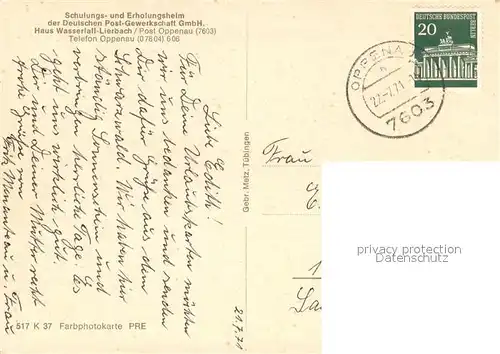 Schulungs- und Erholungsheim
der Deutschen Post-Gewerkschaft GmbH.
Haus Wasserfall-Lierbach / Post Oppenau (7603)
Telefon Oppenau (07804) 606
Liebe Edith!
Für Deine Urlaubskarten möchten
wir uns bedanken und senden
Dir dafür Grüße aus dem
Schwarzwald. Wir haben hier
ständig Sonnenschein und
verbringen herrliche Tage. Es
geht uns wirklich gut.
Dir und Deiner Mutter recht
frohe Grüße von
Fritz u. Frau
21.7.71
517 K 37 Farbphotokarte PRE
Gebr. Metz, Tübingen
DEUTSCHE BUNDESPOST
20
OPPENA
22.-7.71
7603
Frau
privacy protection
www.ansichtskartenversand.com